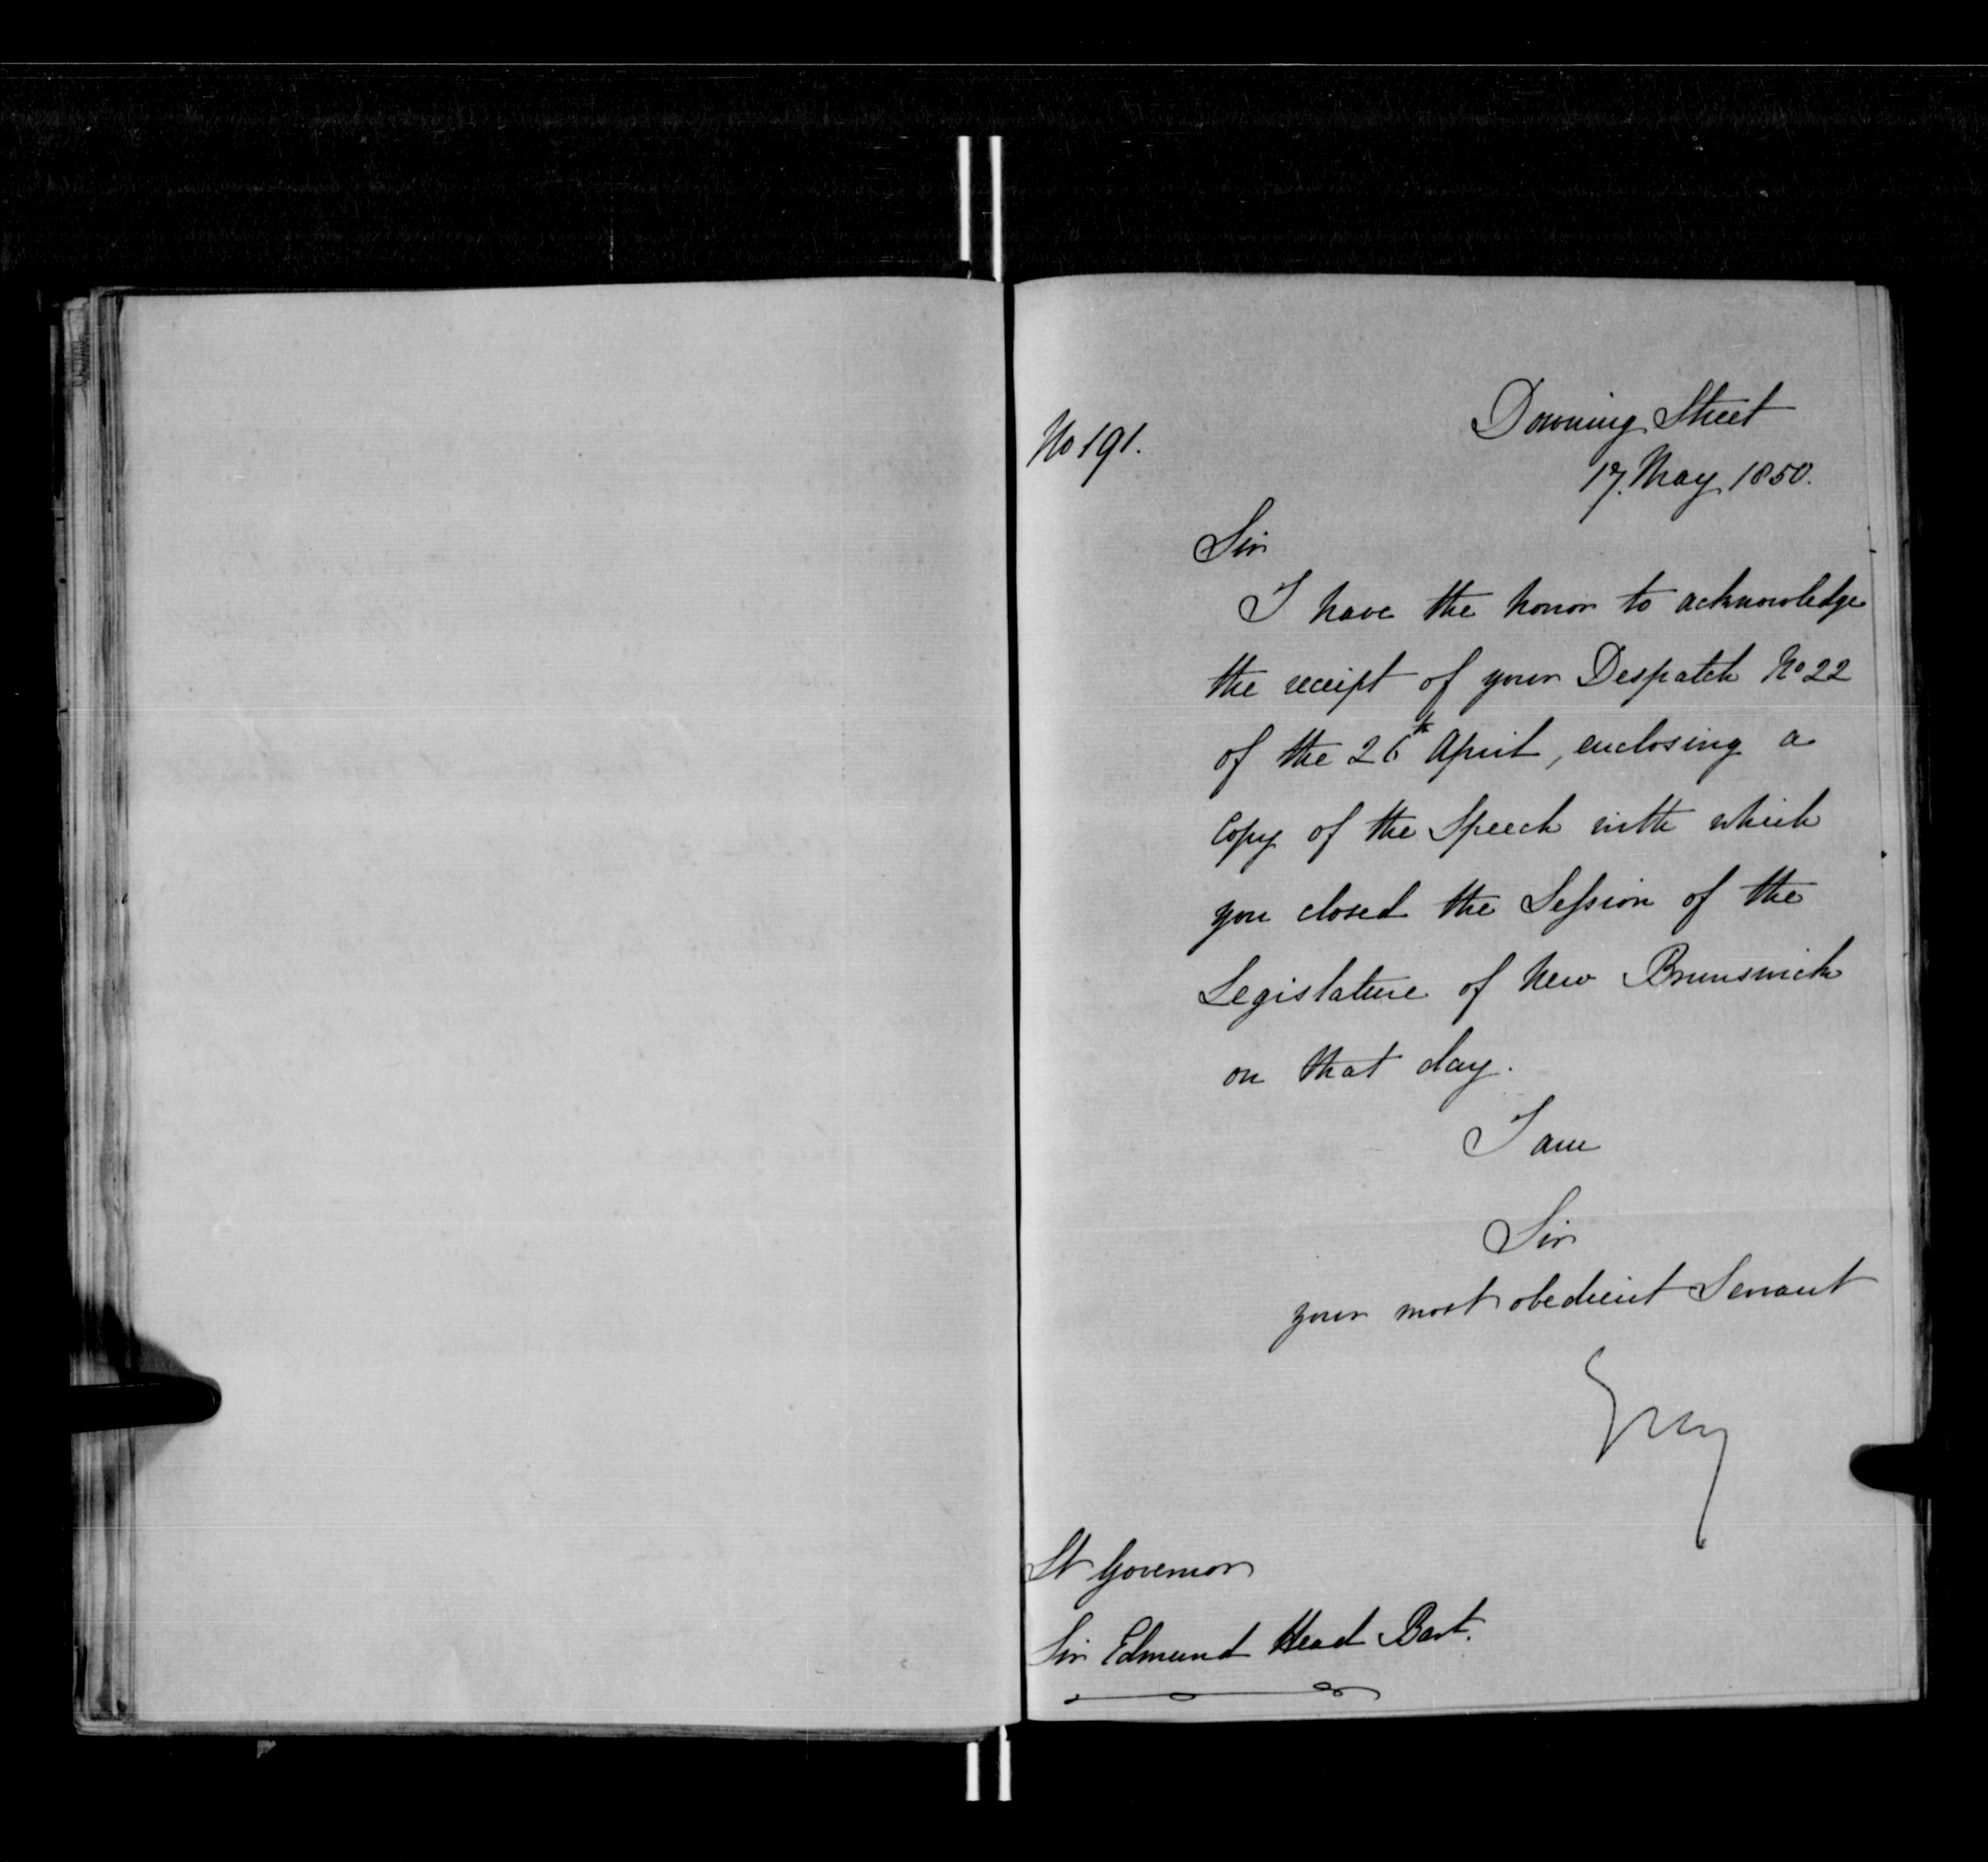 No 191.
Downing Street
17. May 1850.
Sir
I have the honor to acknowledge
the receipt of your Despatch No 22
of the 26th April, enclosing a
Copy of the Speech with which
you closed the Session of the
Legislature of New Brunswick
on that day.
I am
Sir
your most obedient Servant
Grey
Lt Governor
Sir Edmund Head Bart.